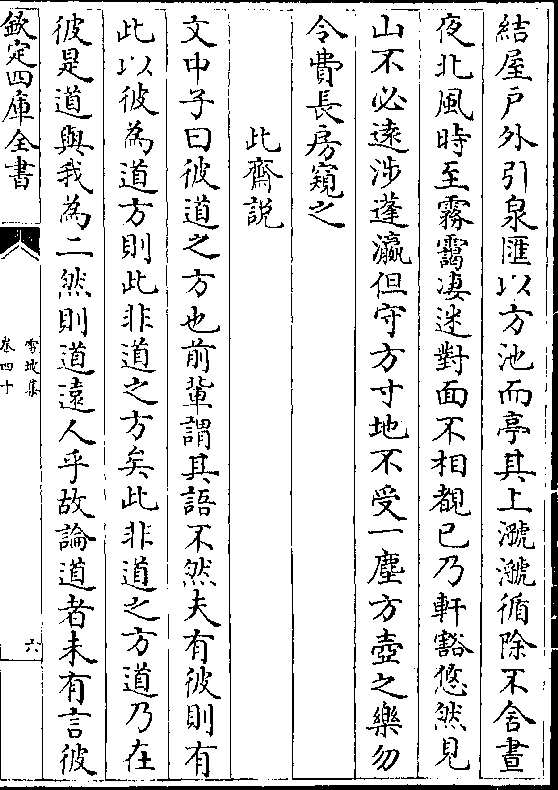 結屋戸外引泉匯以方池而亭其上㶁㶁循除不舎晝
夜北風時至霧靄凄迷對面不相覩已乃軒豁悠然見
山不必逺涉蓬瀛但守方寸地不受一塵方壺之樂勿
令費長房窺之
此齋説
文中子曰彼道之方也前輩謂其語不然夫有彼則有
此以彼為道方則此非道之方矣此非道之方道乃在
彼是道與我為二然則道逺人乎故論道者未有言彼
欽定四庫全書
雪坡集
卷四十
六